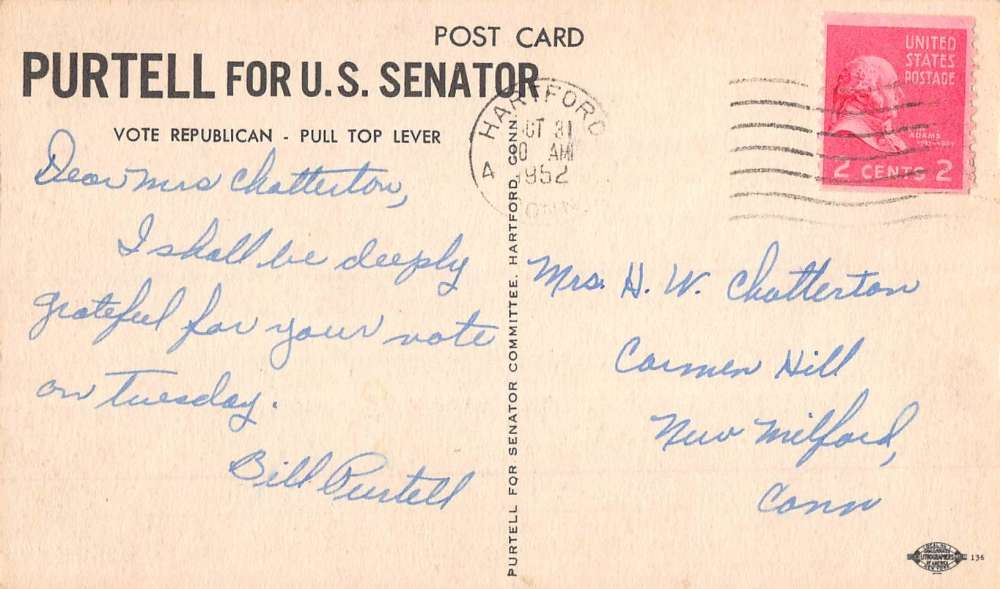 POST CARD
PURTELL FOR U.S. SENATOR
VOTE REPUBLICAN - PULL TOP LEVER
Dear Mrs Chatterton,
I shall be deeply
grateful for your vote
on Tuesday.
Bill Purtell
PURTELL FOR SENATOR COMMITTEE, HARTFORD, CONN.
HARTFORD
OCT 31
AM
1952
4
CONN.
UNITED
STATES
POSTAGE
ADAMS
2 CENTS 2
Mrs. H. W. Chatterton
Carmen Hill
New Milford,
Conn
136